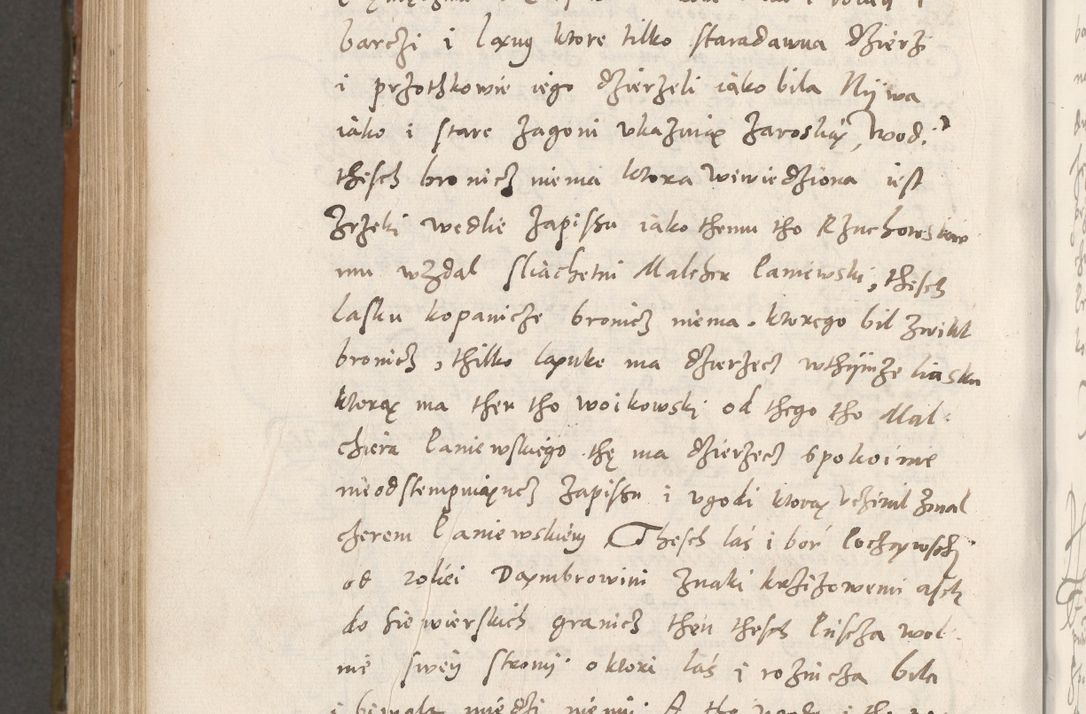 barczi i laxug ktore tilko staradawna dzierzi
i przothkowie iego dzierzeli iako bila Niiwa
iako i stare zagoni vkazuiax zaroskix, Wod:
thesch bronicz niema ktora wiwiedziona iest
zrzeki wedlie zapissu iako themu tho Rzuchowskow
mu wzdal sliachetni Malcher Laniewski, thesch
Lasku kopanicze bronicz niema. ktorego bil zwikl
bronicz, thilko laxuke ma dzierzecz wthijmze liasku
ktorax ma then tho woikowski od thego tho Mal:
chiera Laniewskiego thę ma dzierzecz spokoinie
nieodstempuiaxucz zapissu i vgodi ktorax vczinil zmal
cherem Laniewskiem Thesch las i bor
od roliei Daxmbrowini znaki krzizowemi asch
do siewierskich granicz then thesch puscza wol:
nie swei stroni o ktori las i roznicza bila
i miedzi niemi A tho